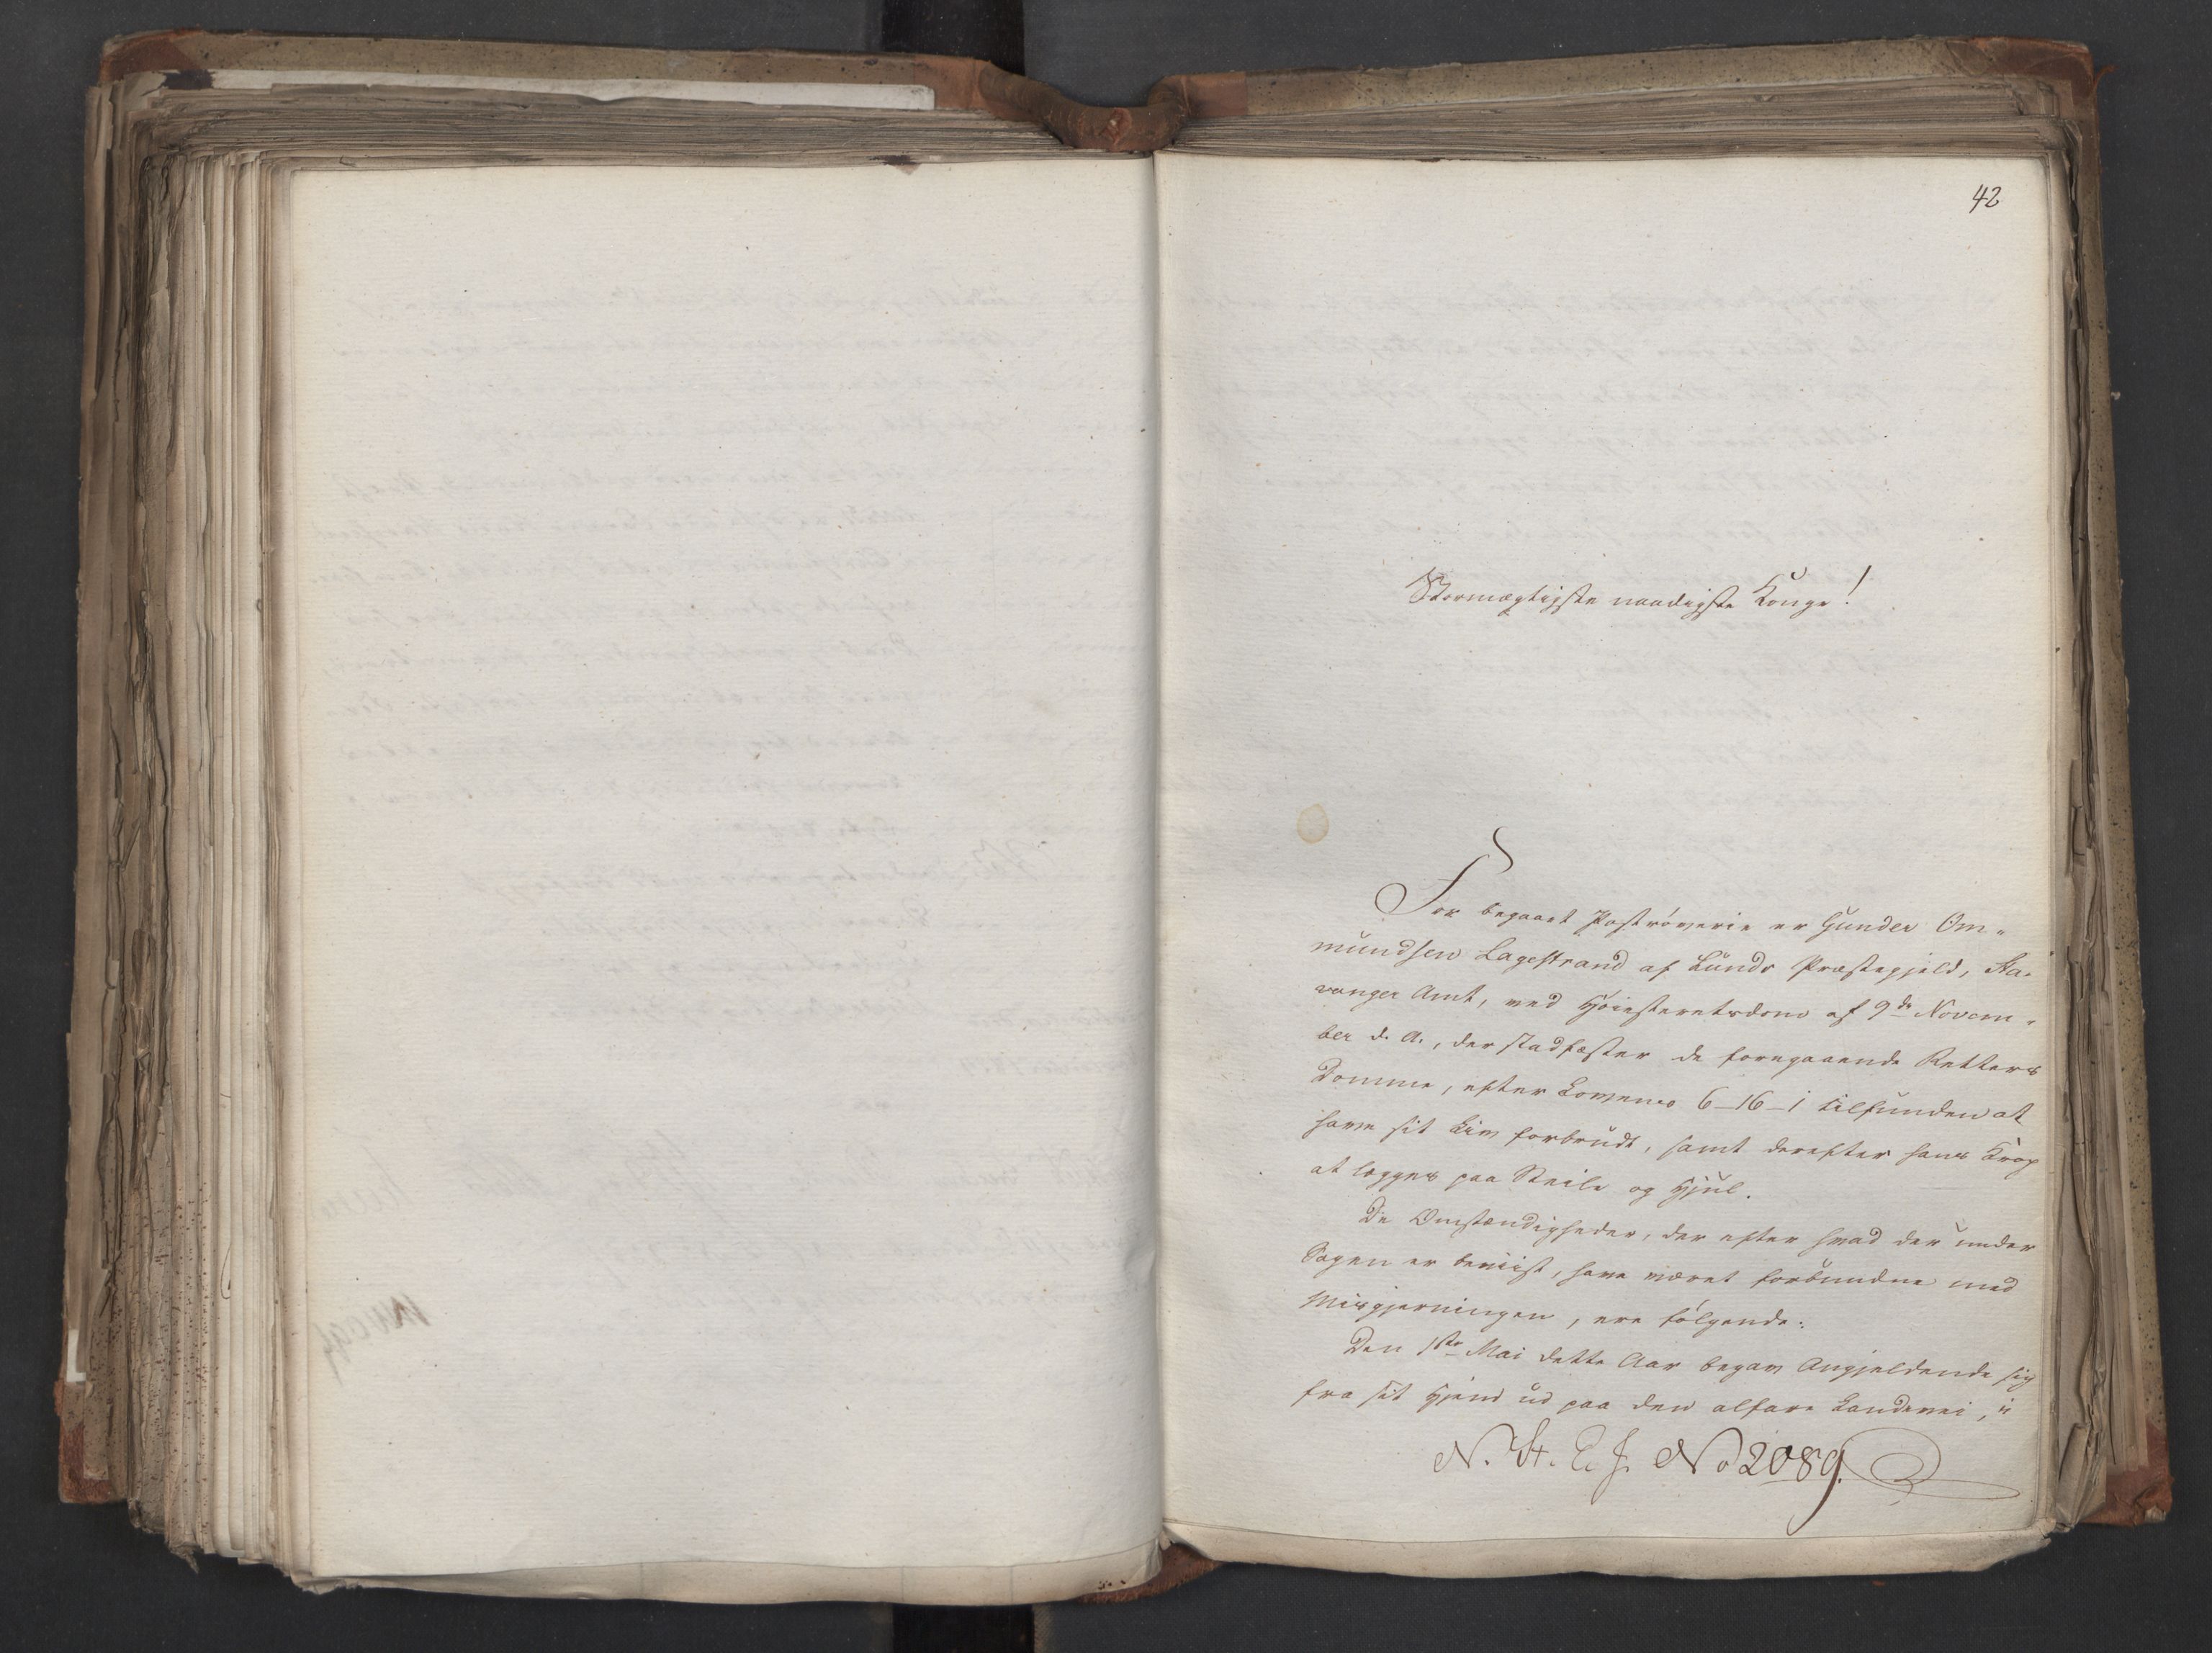 42
Stormægtigste naadigste Konge!
For begaaet Postrøverie er Gunder Om-
mundsen Lagestrand af Lunds Præstegjeld, Sta-
vanger Amt, ved Høiesteretsdom af 9de Novem-
ber d. A., der stadfæster de foregaaende Retters
Domme, efter Lovens 6-16-1 tilfunden at
have sit Liv forbrudt, samt derefter hans Krop
at lægges paa Steile og Hjul.
De Omstændigheder, der efter hvad der under
Sagen er beviist, have været forbundne med
Misgjerningen, ere følgende:
Den 1ste Mai dette Aar begav Angjeldende sig
fra sit Hjem ud paa den alfare Landevei, i
N. St. E. J. No 2089.